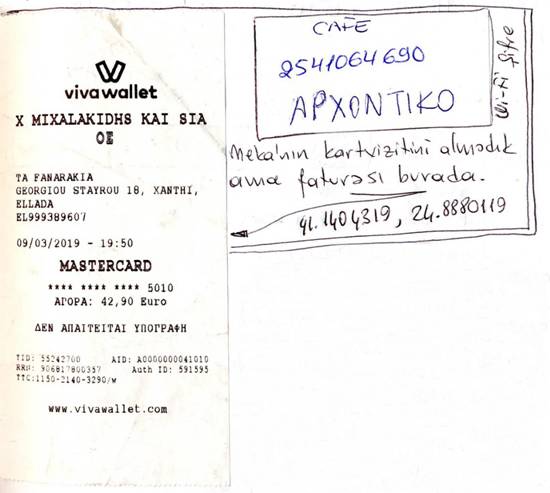 vivawallet
X MIXALAKIDHS KAI SIA
OE
TA FANARAKIA
GEORGIOU STAYROU 18, XANTHI,
ELLADA
EL999389607
09/03/2019 - 19:50
MASTERCARD
**** **** **** 5010
ΑΓΟΡΑ: 42,90 Euro
ΔΕΝ ΑΠΑΙΤΕΙΤΑΙ ΥΠΟΓΡΑΦΗ
TID: 55242700 AID: A0000000041010
RRN: 906817800357 Auth ID: 591595
TTC:1150-2140-3290/w
www.vivawallet.com
CAFE
2541064690
ΑΡΧΟΝΤΙΚΟ
Wi-Fi Şifre
Meka'nın kartvizitini almadık
ama faturası burada.
41.1404319, 24.8880119